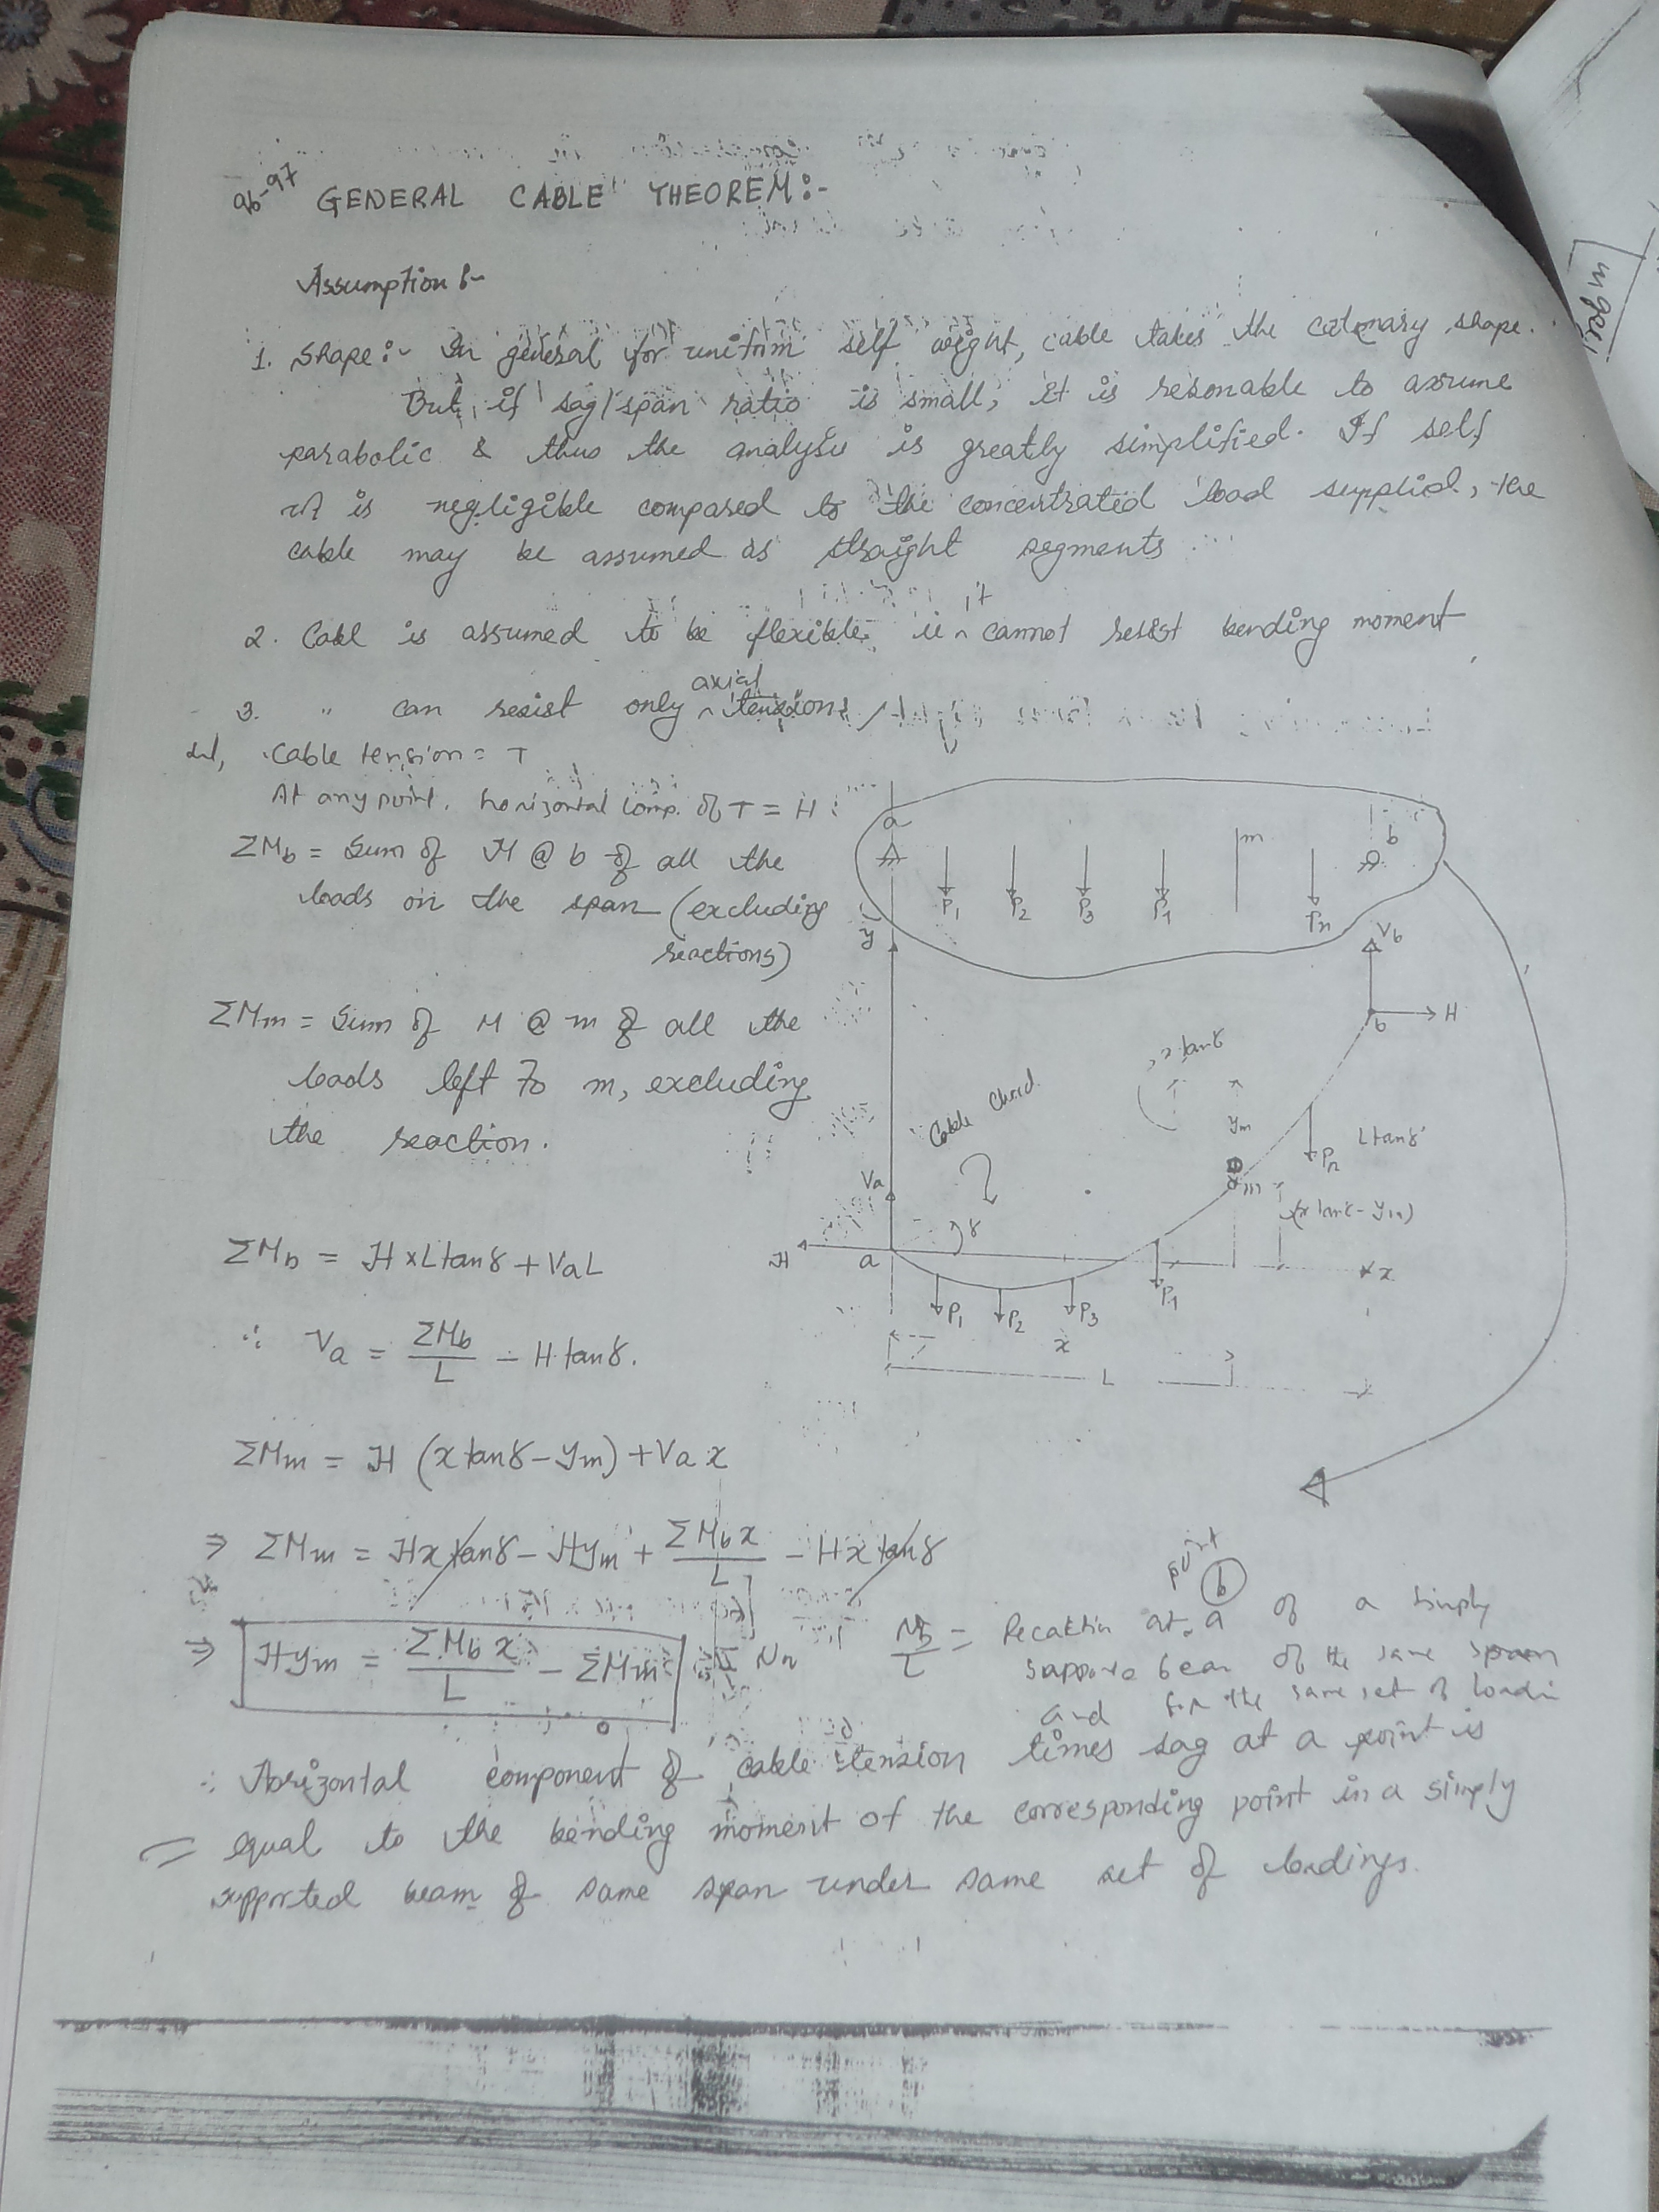 96-97
GENERAL CABLE THEOREM:-
Assumption :-
1. Shape:- In general for unifrm self weight, cable takes the catenary shape.
But, if sag/span ratio is small, it is resonable to assume
parabolic & thus the analysis is greatly simplified. If self
wt is negligible compared to the concentrated load supplied, the
cable may be assumed as straight segments
2. Cabl is assumed to be flexible, ie it cannot resist bending moment
3. " can resist only axial tensions
Let, Cable tension = T
At any point, horizontal comp. of T = H
ΣMb = Sum of M @ b of all the
loads on the span (excluding
reactions)
ΣMm = Sum of M @ m of all the
loads left to m, excluding
the reaction.
a
P1 P2 P3 P4 m Pn b
y
Vb
b H
x tanγ
ym
Cable Chord
Va
m Pn L tanγ
(x tanγ - ym)
H a γ x
P1 P2 P3 P4
x
L
ΣMb = H×L tanγ + VaL
∴ Va = ΣMb/L - H tanγ.
ΣMm = H (x tanγ - ym) + Va x
⇒ ΣMm = Hx tanγ - Hym + ΣMb x/L - Hx tanγ
⇒ Hym = ΣMb x/L - ΣMm
Mb/L = Recaktin at point a (b) of a simply
supported bean of the same span
and for the same set of loadin
∴ Horizontal component of cable tension times sag at a point is
equal to the bending moment of the corresponding point in a simply
supported beam of same span under same set of loadings.